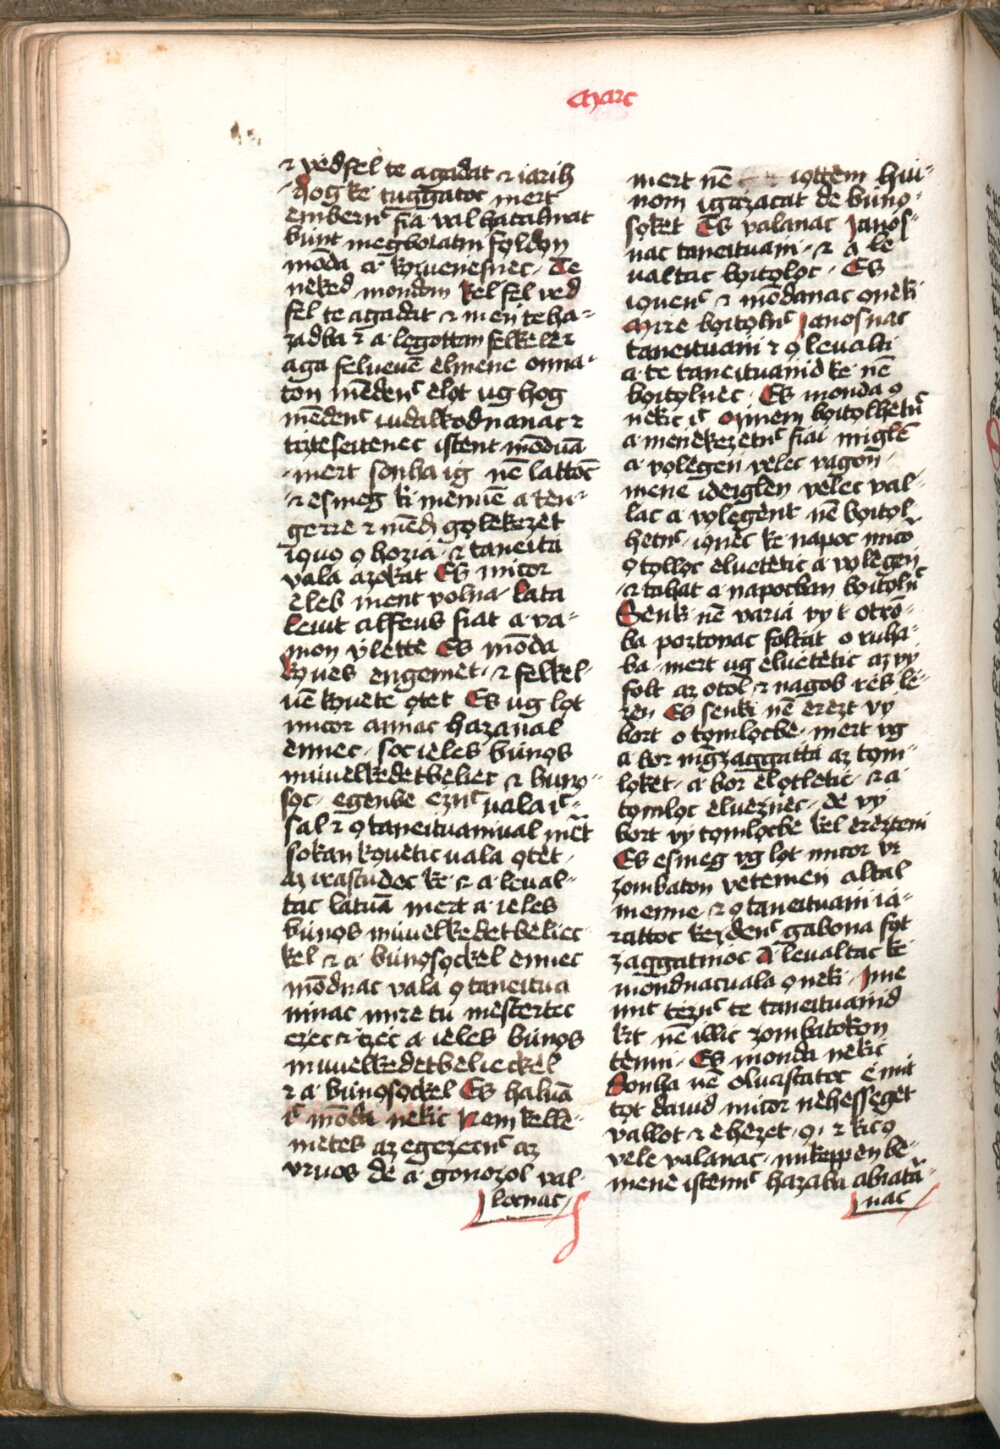 Marc
⁊ vèdfel te agadat ⁊ iarih
hog ke tuggatoc mert
embernc̄ fia val hatalmat
bu̇nt megbolatni földön
mōda a kozuenėsnec · Te
neked mondom kel fel ved
fel te agadat ⁊ menj te ha=
zadba ⁊ a legottan felkeler
aga felueuē elmene onna=
ton mēdenc̄ ėlot ug hog
mēdenc̄ ċudalkodnanac ⁊
tiztėseitenec istent mōduā
mert sonha ig nē lattoc
⁊ esmeg ki menuē a ten=
gerre ⁊ mēd gọlekezet
iọuo ọ hozia ⁊ taneita
vala azokat Es micor
èleb ment volna lata
leuit alfeus fiat a va=
mon v̇lette Es mōda
kọues engemet ⁊ felkel=
uē kọuete ọtet Es ug lọt
micor annac hazanal
ennec soc ieles bu̇nọs
miuelkedetbeliec ⁊ bu̇nọ=
sọc egenbe eznc̄ vala ic̄=
sal ⁊ ọ taneituanival mēt
sokan kọuetic vala ọtèt
Az irastudoc ke ⁊ a leual=
tac latuā mert a ieles
bu̇nọs miuelkedetbeliec
kel ⁊ a bu̇nọsọckel ennec
mōdnac vala ọ taneitua
ninac mire tu̇ mèsterten
ezec ⁊ izec a ieles bu̇nọs
miuelkedetbelieckèl
⁊ a bu̇nọsọckel Es haluā
ic̄ mōda nekic Nem kelle=
metes az egezecnc̄ az
vruos de a gonozol val=
locnac
mert nē iọttem hiu=
nom igazacat de bu̇nọ=
sọket Es valanac Janos=
nac taneituani ⁊ a le
ualtac bọitọlọc · Es
iọuenc̄ ⁊ mōdanac ọneki
Mire bọitọlnc̄ Janosnac
taneituani ⁊ ọ leualti
a te taneituanid ke nē
bọitọlnec · Es monda ọ
nekic ic̄ Minem bọitọlhetnc̄
a menėkezetnc̄ fiai miglē
a vọlegen velec vagon
mene ideiglen velec val=
lac a vọlegent nē bọitọl
hetnc̄ iọnec ke napoc mico
ọtọlloc eluètetic a vọlegen
⁊ tahat a napocban bọitọlnc̄
Senki nē varia vy t otrō=
ba poztonac foltat o ruha=
ba mert ug eluètetic az vy
folt az otol ⁊ nagob reb le=
zen Es senki nē erezt vy
bort o tọmlọcbe mert vg
a bor mgzaggatta az tọm=
lọket a bor èlọtletic ⁊ a
tọmlọc eluèznèc de vy
bort vy tọmlọcbe kel ereztenj
Es esmeg vg lọt micor vr
zombaton vetemen altal
menne ⁊ ọ taneituani ia=
rattoc kezdenc̄ gabona fọt
zaggatnioc A leualtac ke
mōdnacuala ọneki Ime
mit teznc̄ te taneituanid
kit nē illic zombatokon
tenni Es monda nekic
Sonha nē oluastatoc é mit
tọt dauid micor nèhesseget
vallot ⁊ èhezet ọ ⁊ kic ọ
vele valanac mikeppen be=
mene istennc̄ hazaba abiata=
nac